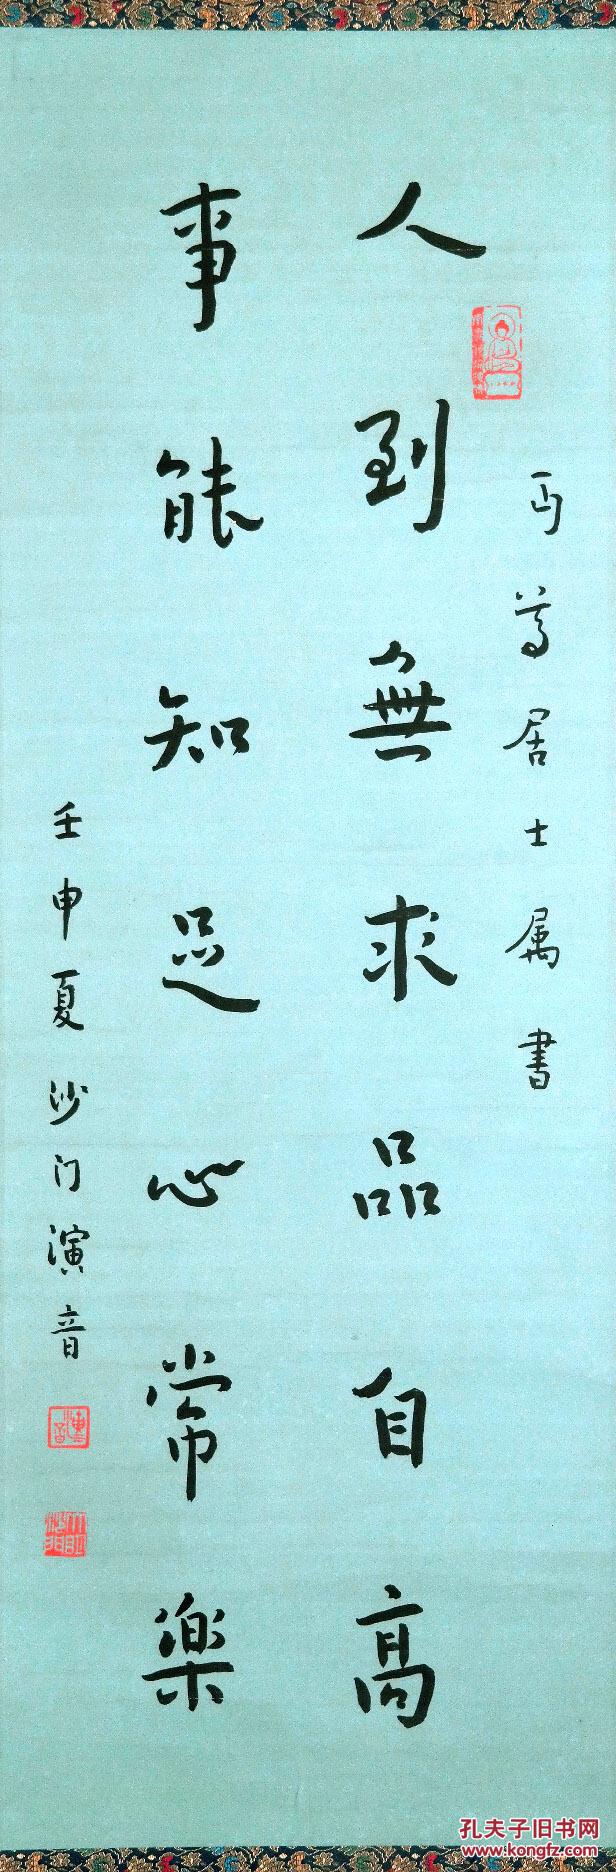 丏尊居士属书
人到無求品自高
事能知足心常樂
壬申夏沙门演音
演音
孔夫子旧书网
www.kongfz.com